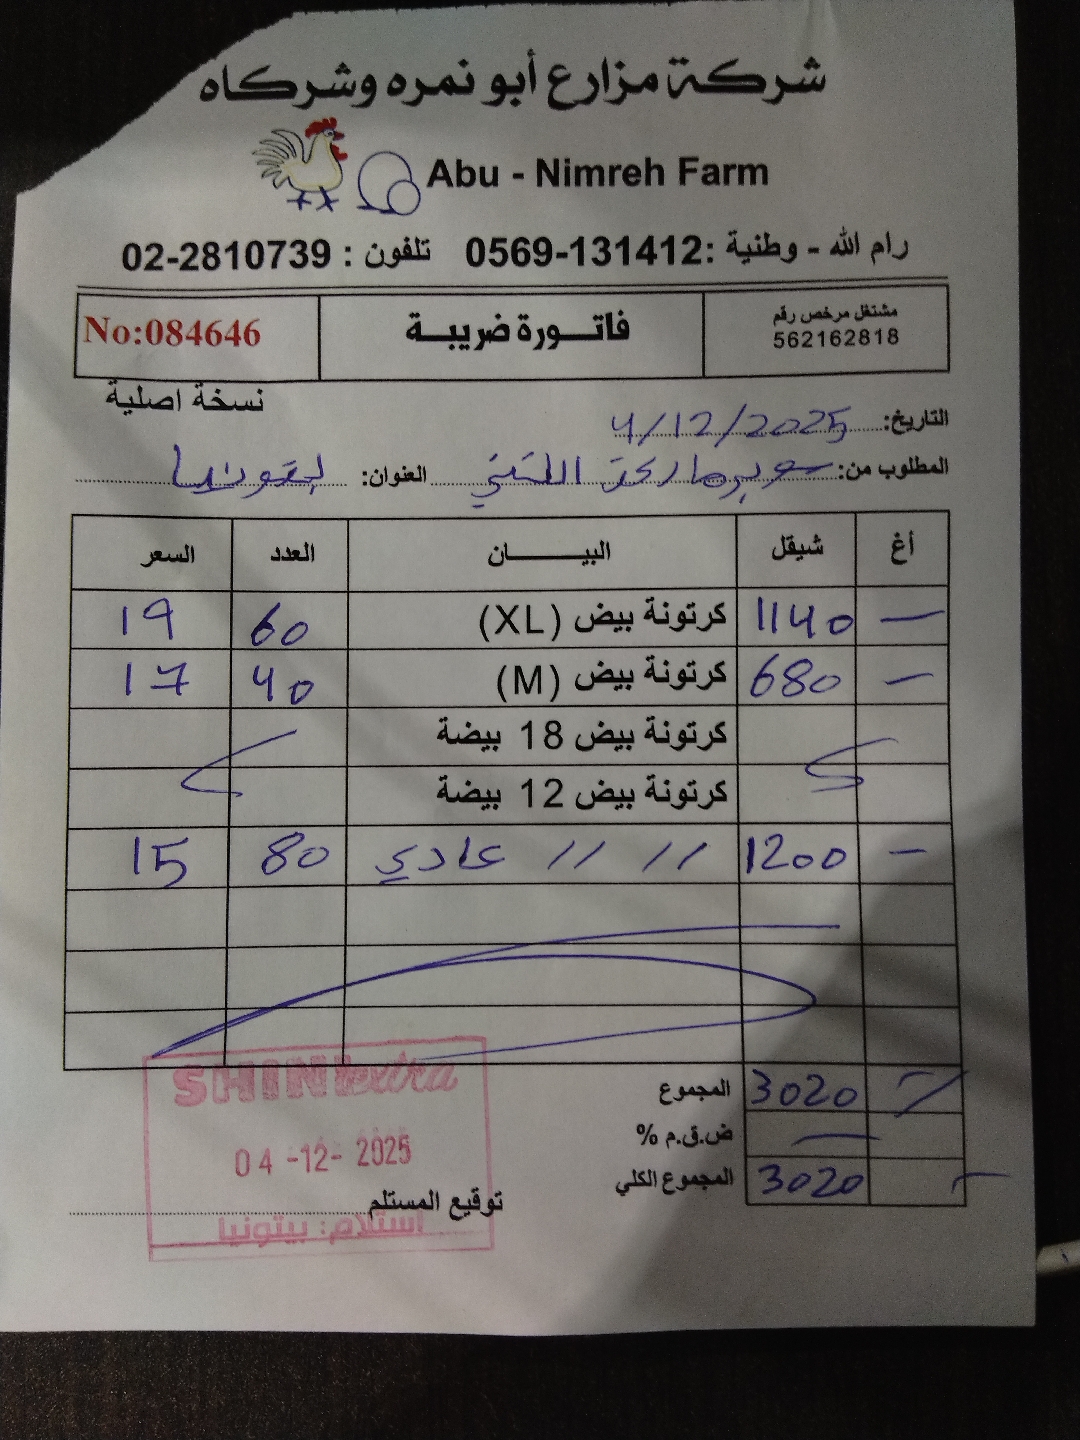 شركة مزارع أبو نمره وشركاه
Abu - Nimreh Farm
رام الله - وطنية :0569-131412 تلفون : 02-2810739
مشتغل مرخص رقم
562162818
فاتورة ضريبة
No:084646
نسخة اصلية
التاريخ: 4/12/2025
المطلوب من: سوبرماركت العنوان: بيتونيا
أغ شيقل البيان العدد السعر
— 1140 كرتونة بيض (XL) 60 19
— 680 كرتونة بيض (M) 40 17
كرتونة بيض 18 بيضة
كرتونة بيض 12 بيضة
— 1200 // // عادي 80 15
المجموع 3020
ض.ق.م % —
المجموع الكلي 3020
توقيع المستلم
SHINI extra
04 -12- 2025
استلام: بيتونيا